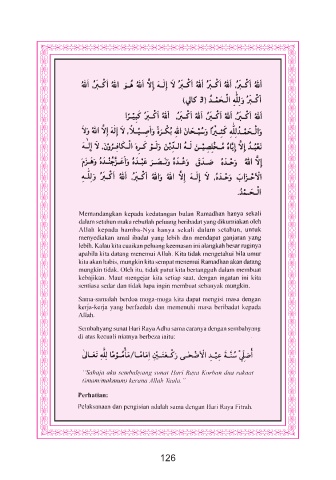 اَللهُ اَكْبَرُ، اَللهُ اَكْبَرُ، اَللهُ اَكْبَرُ لَا إِلَـهَ إِلَّا اللهُ هُـوَ اللهُ اَكْـبَرُ، اَللهُ
اَكْبَرُ وَلِلّٰهِ الْـحَمْـدُ (3 كالي)
اَللهُ اَكْبَرُ، اَللهُ اَكْبَرُ، اَللهُ اَكْـبَرُ، اَللهُ اَكْـبَرُ كَـبِيْـرًا
وَالْـحَمْـدُ لِلّٰهِ كَثِـيْرًا وَسُبْـحَانَ اللهِ بُكْـرَةً وَأَصِـيْـلًا، لَا إِلَهَ إِلَّا اللهُ وَلَا
نَعْبُـدُ إِلَّا إِيَّاهُ مُـخْلِصِيْـنَ لَـهُ الدِّيْنَ وَلَـوْ كَـرِهَ الْـكَافِـرُوْنَ. لَا إِلَـهَ
إِلَّا اللهُ وَحْـدَهُ صَـدَقَ وَعْـدَهُ وَنَـصَـرَ عَبْـدَهُ وَأَعَـزَّ جُنْـدَهُ وَهَـزَمَ
الْأَحْـزَابَ وَحْـدَهُ، لَا إِلَـهَ إِلَّا اللهُ وَاللهُ أَكْـبَرُ، اَللهُ أَكْـبَرُ وَلِلّٰـهِ
الْـحَمْـدُ.
Memandangkan kepada kedatangan bulan Ramadhan hanya sekali
dalam setahun maka rebutlah peluang beribadat yang dikurniakan oleh
Allah kepada hamba-Nya hanya sekali dalam setahun, untuk
menyediakan amal ibadat yang lebih dan mendapat ganjaran yang
lebih. Kalau kita cuaikan peluang keemasan ini alangkah besar ruginya
apabila kita datang menemui Allah. Kita tidak mengetahui bila umur
kita akan habis, mungkin kita sempat menemui Ramadhan akan datang
mungkin tidak. Oleh itu, tidak patut kita bertangguh dalam membuat
kebajikan. Maut mengejar kita setiap saat, dengan ingatan ini kita
sentiasa sedar dan tidak lupa ingin membuat sebanyak mungkin.
Sama-samalah berdoa moga-moga kita dapat mengisi masa dengan
kerja-kerja yang berfaedah dan memenuhi masa beribadat kepada
Allah.
Sembahyang sunat Hari Raya Adha sama caranya dengan sembahyang
di atas kecuali niatnya berbeza iaitu:
أُصَلِّيْ سُنَّـةَ عِيْـدِ الْاَضْحَـى رَكْـعَتَـيْنِ إِمَامًـا/مَأْمُـوْمًا لِلّٰهِ تَعَـالَى
"Sahaja aku sembahyang sunat Hari Raya Korban dua rakaat
(imam/makmum) kerana Allah Taala."
Perhatian:
Pelaksanaan dan pengisian adalah sama dengan Hari Raya Fitrah.
126